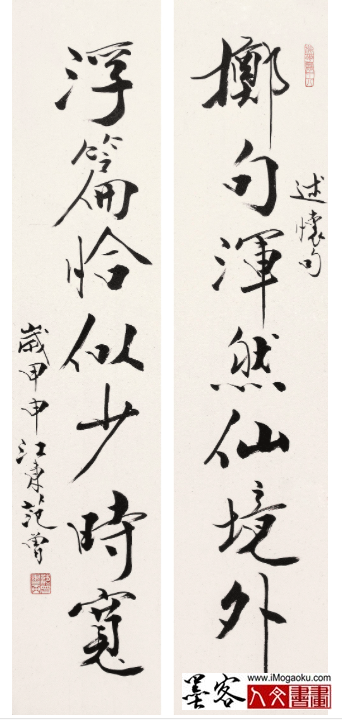 擲句渾然仙境外
述懷句
浮篇恰似少時寬
歲甲申江東范曾
www.iMogaoku.com
墨客
人文書畫